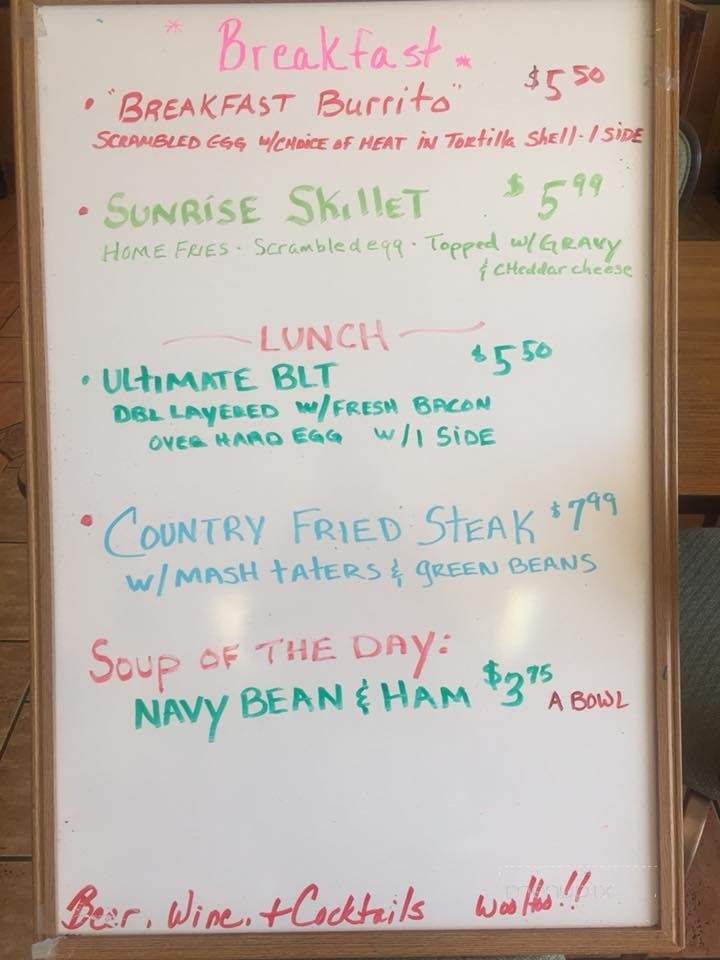 * Breakfast *
• "BREAKFAST Burrito" $5 50
SCRAMBLED EGG W/CHOICE OF MEAT iN TORTillA SHEll - 1 SiDE
• SUNRiSE SKillET $5 99
HOME FRIES · Scrambled egg · Topped w/GRAVY
& CHeddar cheese
LUNCH
• ULtiMATE BLT $5 50
DBL LAYERED W/FRESH BACON
OVER HARD EGG W/1 SiDE
• COUNTRY FRiED STEAK $7 99
W/MASH tAtERS & gREEN BEANS
Soup OF THE DAY:
NAVY BEAN & HAM $3 75 A BOWL
Beer, Wine, + Cocktails Woo Hoo!!
menupix